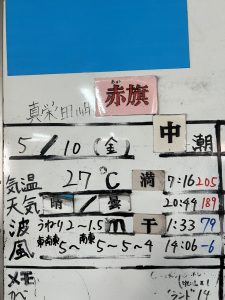 真栄田岬 赤旗
5/10(金) 中潮
気温 27℃ 満 7:16 205
天気 晴/曇 20:44 189
波 うねり2~1.5m 干 1:33 79
風 東南東5~南東5~4 14:06 -6
メモ